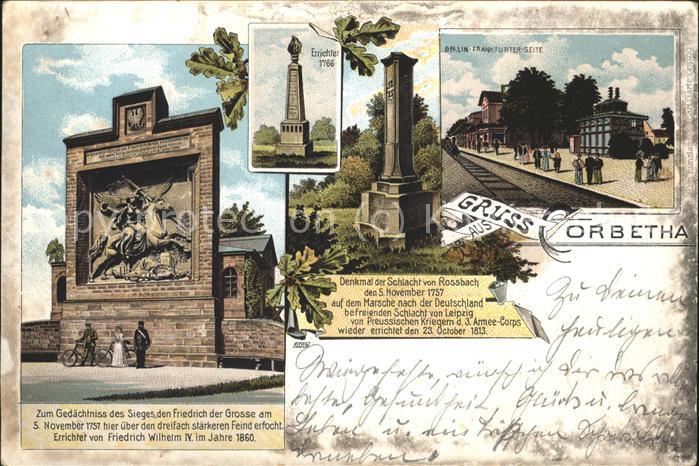 Errichtet
1766
BERLIN-FRANKFURTER-SEITE
GRUSS
AUS
CORBETHA
Denkmal der Schlacht von Rossbach,
den 5. November 1757
auf dem Marsche nach der Deutschland
befreienden Schlacht von Leipzig
von Preussischen Kriegern d. 3. Armee-Corps
wieder errichtet den 23. October 1813.
Zum Gedächtniss des Sieges, den Friedrich der Grosse am
5. November 1757 hier über den dreifach stärkeren Feind erfocht.
Errichtet von Friedrich Wilhelm IV. im Jahre 1860.
Zu deinem
heutigen
Wiegenfeste, wünsch ich der
beste Gesundheit Glück u.
Leben u. ein